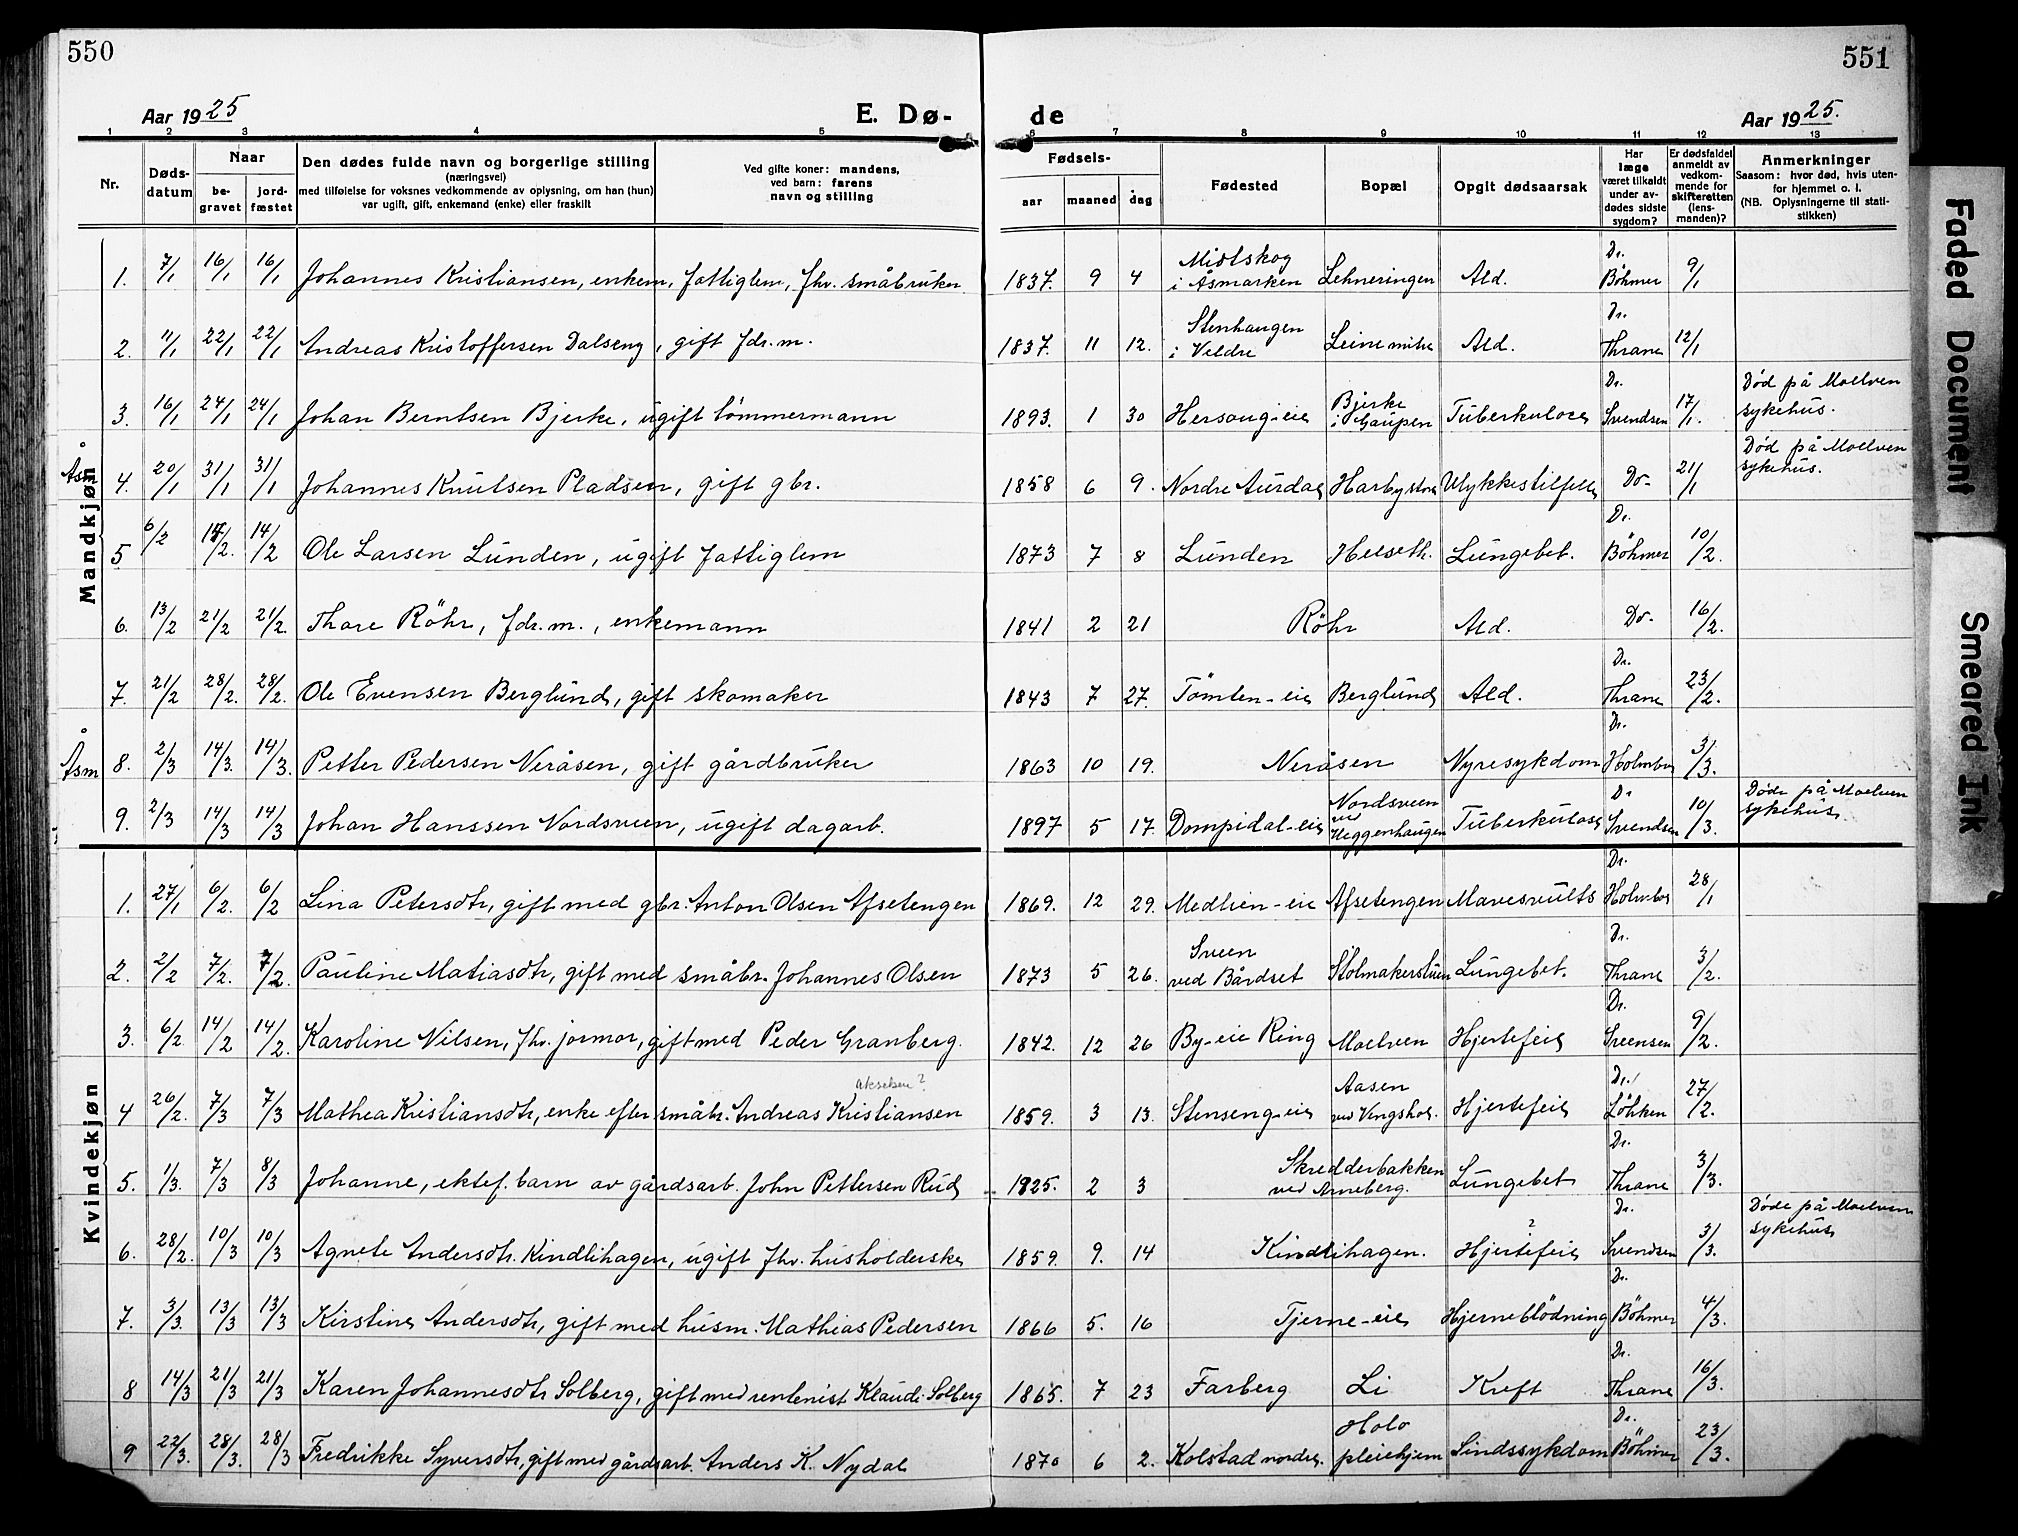 550
551
Aar 1925
E. Dø-
de
Aar 1925.
1 2 3 4 5 6 7 8 9 10 11 12 13
Nr.
Døds-datum
Naar
be-gravet
jord-fæstet
Den dødes fulde navn og borgerlige stilling
(næringsvei)
med tilføielse for voksnes vedkommende av oplysning, om han (hun)
var ugift, gift, enkemand (enke) eller fraskilt
Ved gifte koner: mandens,
ved barn: farens
navn og stilling
Fødsels-
aar
maaned
dag
Fødested
Bopæl
Opgit dødsaarsak
Har læge været tilkaldt under av-dødes sidste sygdom?
Er dødsfaldet anmeldt av vedkom-mende for skifteretten (lens-manden)?
Anmerkninger
Saasom: hvor død, hvis uten-
for hjemmet o. l.
(NB. Oplysningerne til stati-
stikken)
Mandkjøn
1. 7/1 16/1 16/1 Johannes Kristiansen, enkem, fattiglem, fhv. småbruker 1837. 9 4 Midtskog i Åsmarken Lehneringen Ald. Dr. Böhmer 9/1
2. 11/1 22/1 22/1 Andreas Kristoffersen Dalseng, gift fdr. m. 1837. 11 12. Stenhaugen i Veldre Ald. Dr. Thrane 12/1
3. 16/1 24/1 24/1 Johan Berntsen Bjerke, ugift tömmermann 1893. 1 30 Hersoug-eie Bjerke i Gaupen Tuberkulose Dr. Svendsen 17/1. Död på Moelven sykehus.
Åsm 4. 20/1 31/1 31/1 Johannes Knutsen Pladsen, gift gbr. 1858 6 9. Nordre Aurdal Harbystoen Ulykkestilfelle Do- 21/1 Död på Moelven sykehus.
5 6/2 14/2. 14/2 Ole Larsen Lunden, ugift fattiglem 1873 7 8 Lunden Helseth. Lungebet. Dr. Böhmer 10/2.
6. 13/2 21/2 21/2. Thore Röhr, fdr. m., enkemann 1841 2 21 Röhr Ald. Do- 16/2.
7. 21/2 28/2. 28/2. Ole Evensen Berglund, gift skomaker 1843 7 27. Tömten-eie Berglund Ald. Dr. Thrane 23/2.
Åsm 8. 2/3 14/3. 14/3. Petter Pedersen Neråsen, gift gårdbruker 1863 10 19. Neråsen Nyresykdom Dr. Holmboe 3/3.
9. 2/3 14/3 14/3 Johan Hanssen Nordsveen, ugift dagarb. 1897 5 17. Dompidal-eie Nordsveen ved Heggenhaugen Tuberkulose Dr Svendsen 10/3. Döde på Moelven sykehus
Kvindekjøn
1. 27/1 6/2. 6/2 Lina Petersdtr, gift med gbr. Anton Olsen Afsetengen 1869. 12 29. Medlien-eie Afsetengen Mavesvulst Dr. Holmboe 28/1
2. 2/2 7/2. 7/2. Pauline Matiasdtr, gift med småbr. Johannes Olsen 1873 5 26. Sveen ved Bårdset Stolmakerstuen Lungebet. Dr. Thrane 3/2.
3. 6/2 14/2 14/2. Karoline Nilsen, fhv. jormor, gift med Peder Granberg. 1842. 12 26 By-eie Ring Moelven Hjertefeil Dr. Svensen 9/2.
Akselsen?
4 26/2. 7/3 7/3 Mathea Kristiansdtr, enke efter småbr. Andreas Kristiansen 1859. 3 13. Stenseng-eie Aasen ved Vengshol. Hjertefeil Dr. Löhken 27/2.
5. 1/3. 7/3 8/3 Johanne, ektef. barn av gårdsarb. John Pettersen Rud 1925. 2 3 Skredderbakken ved Arneberg. Lungebet Dr. Thrane 3/3.
6. 28/2. 10/3 10/3 Agnete Andersdtr. Kindlihagen, ugift fhv. husholderske 1859. 9. 14 Kindlihagen. Hjertefeil ? Dr. Svendsen 3/3. Döde på Moelven sykehus
7. 3/3. 13/3 13/3 Kirstine Andersdtr, gift med husm. Mathias Pedersen 1866 5. 16 Tjerne-eie Hjerneblödning Dr. Böhmer 4/3.
8 14/3 21/3 21/3 Karen Johannesdtr Solberg, gift med rentenist Klaudi Solberg 1865. 7 23 Farberg Li Kreft Dr. Thrane 16/3.
9 22/3. 28/3. 28/3 Fredrikke Syversdtr, gift med gårdsarb. Anders K. Nydal 1870 6 2. Kolstad nordre. Holo pleiehjem Sindssykdom Dr. Böhmer 23/3.
Faded Document
Smeared Ink